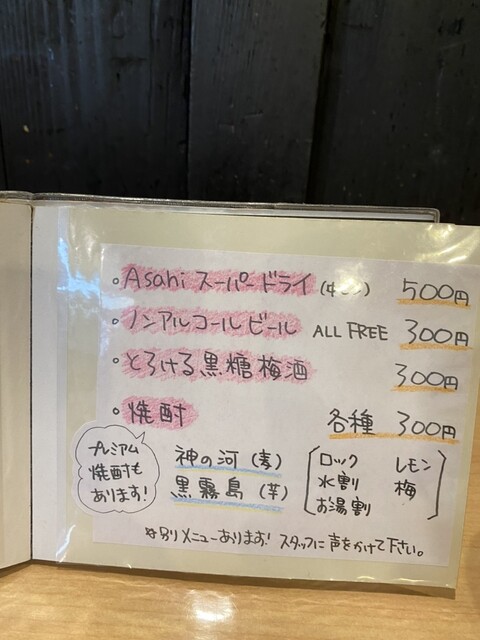 ・Asahi スーパードライ 500円
・ノンアルコールビール ALL FREE 300円
・とろける黒糖梅酒 300円
・焼酎 各種 300円
プレミアム
焼酎も
あります!
神の河 (麦)
黒霧島 (芋)
ロック レモン
水割 梅
お湯割
メニューあります! スタッフに声をかけて下さい。